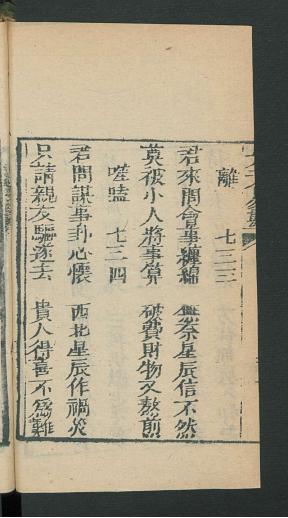 離 七三三
君來問會事纏綿 無奈星辰信不然
莫被小人將事算 破費財物又熬煎
嗟嗑 七三四
君問謀事到心懷 西北星辰作禍災
只請親友驅遂去 貴人得喜不爲難